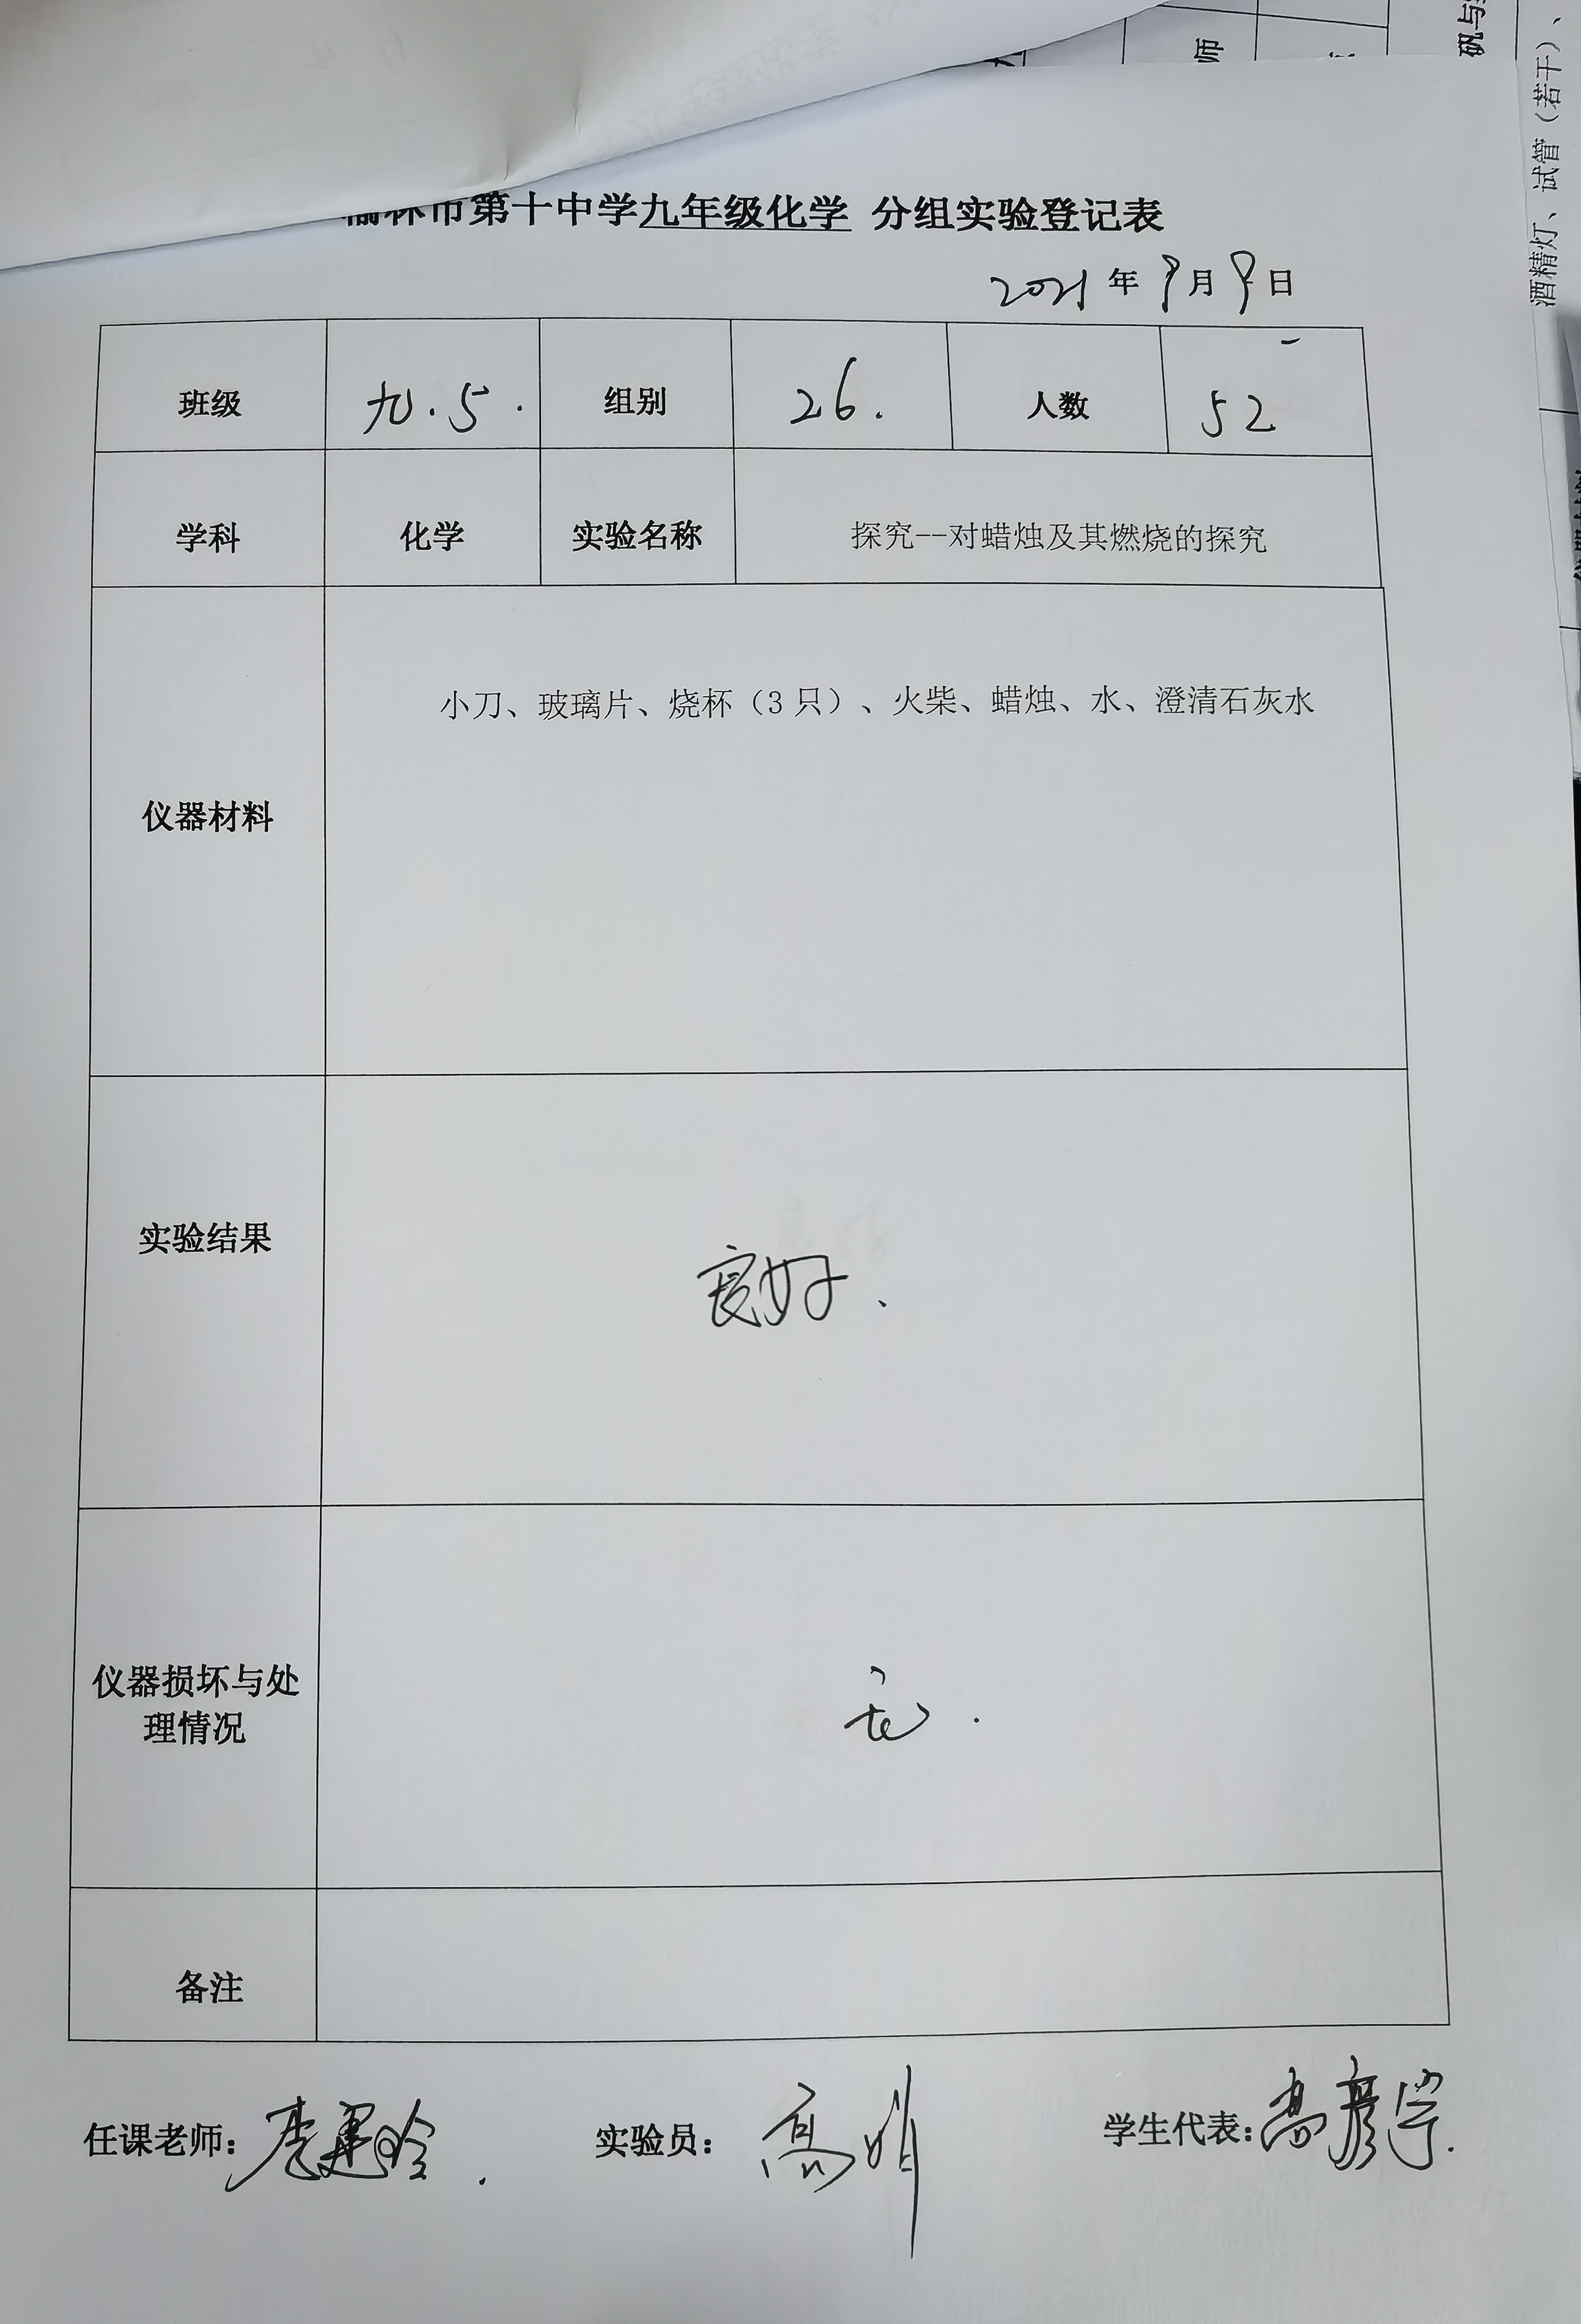 榆林市第十中学九年级化学 分组实验登记表
2021年9月9日
班级 九.5. 组别 26. 人数 52
学科 化学 实验名称 探究--对蜡烛及其燃烧的探究
仪器材料 小刀、玻璃片、烧杯（3只）、火柴、蜡烛、水、澄清石灰水
实验结果 良好.
仪器损坏与处
理情况 无.
备注
任课老师： 实验员：高娟 学生代表：高彦宇.
师
矾与
酒精灯、试管（若干）、